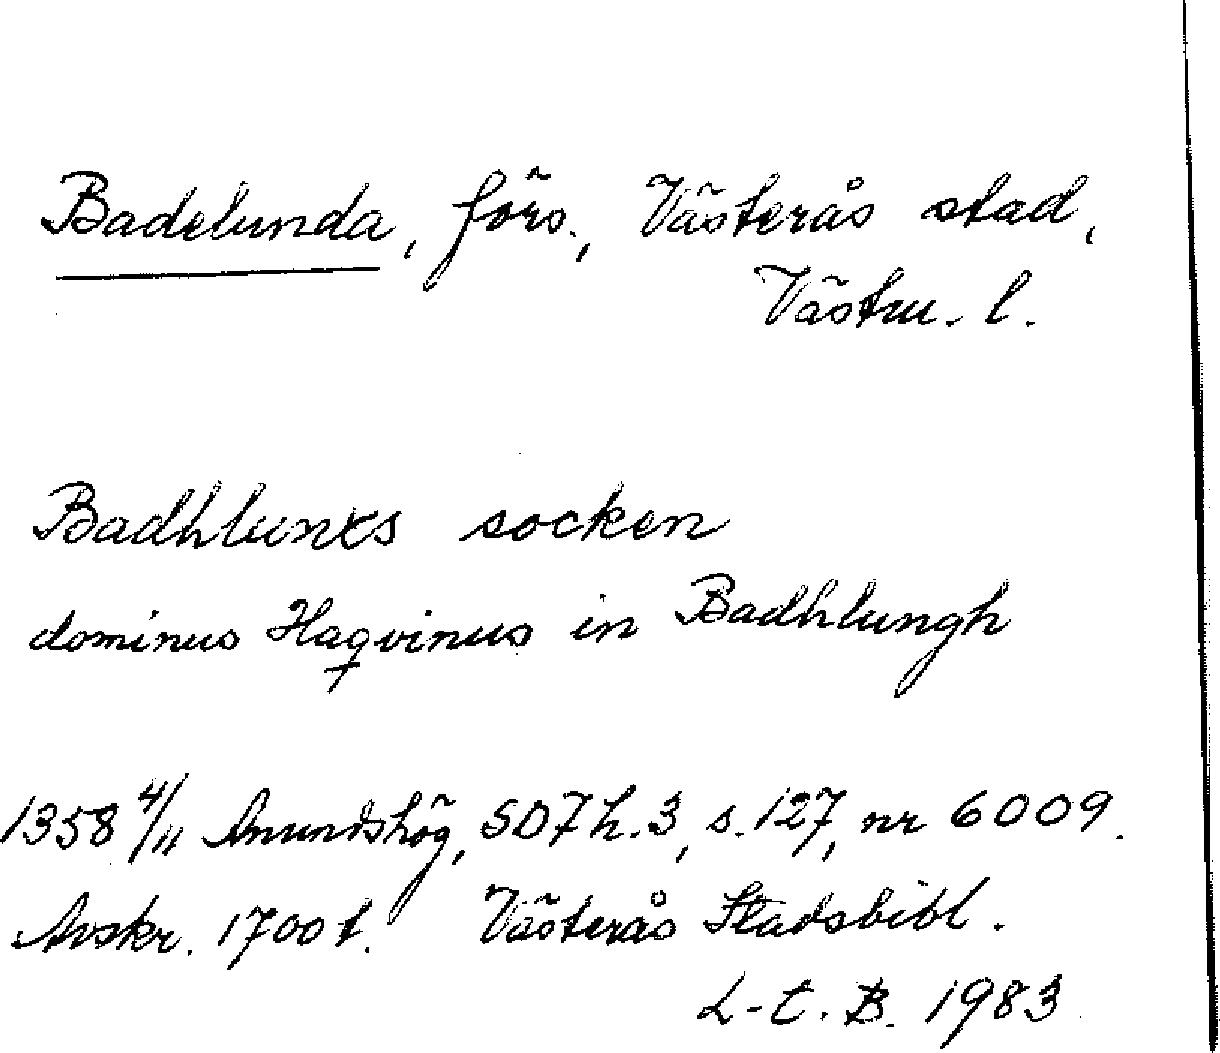 Badelunda, förs., Västerås stad,
Västm. l.
Badhlunɤs socken
dominus Haqvinus in Badhlungh
1358 4/11 Anundshög, SD7 h. 3, s. 127, nr 6009.
Avskr. 1700 t. Västerås Stadsbibl.
L-t. B. 1983